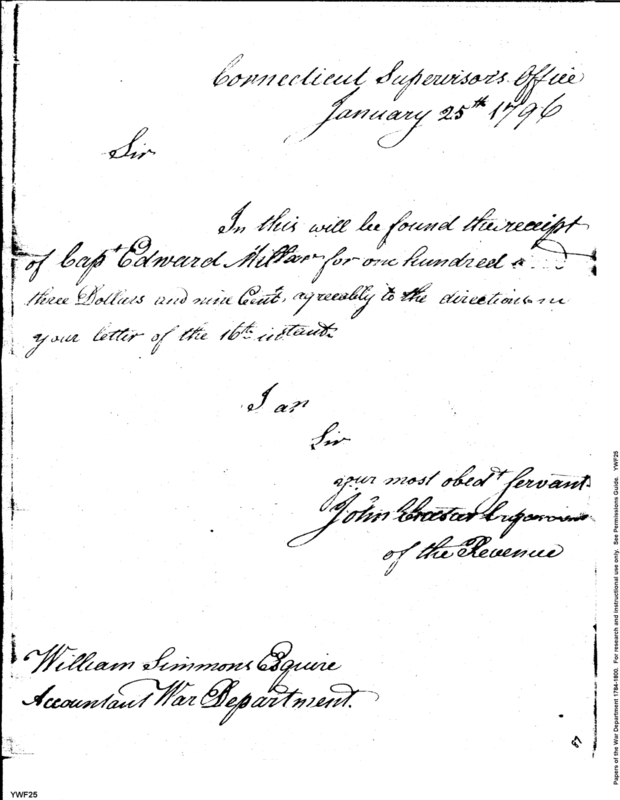 Connecticut Supervisors Office
January 25th 1796
Sir
In this will be found the receipt
of Capt Edward Miller for one hundred
three Dollars and nine Cents, agreeably to the directions in
your letter of the 16th instant
I am
Sir
your most obedt servant
John Chester
of the Revenue
William Simmons Esquire
Accountant War Department.
YWF25
Papers of the War Department 1784-1800. For research and instructional use only. See Permissions Guide. YWF25